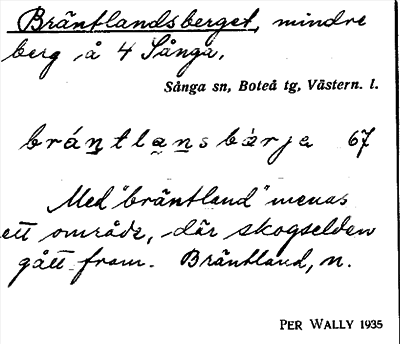 Bräntlandsberget, mindre
berg å 4 Sånga.
Sånga sn, Boteå tg, Västern. l.
brántlansbàrja 67
Med "bräntland" menas
ett område, där skogselden
gått fram. Bräntland, n.
PER WALLY 1935